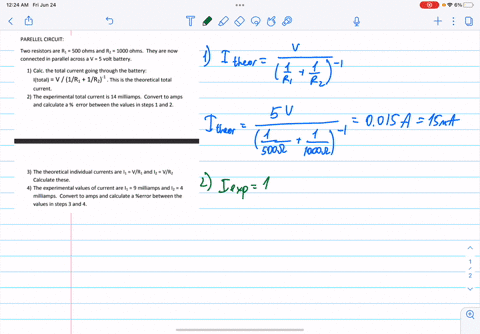 12:24 AM Fri Jun 24
6%
PARELLEL CIRCUIT:
Two resistors are R₁ = 500 ohms and R₂ = 1000 ohms. They are now
connected in parallel across a V = 5 volt battery.
1) Calc. the total current going through the battery:
I(total) = V / (1/R₁ + 1/R₂)⁻¹. This is the theoretical total
current.
2) The experimental total current is 14 milliamps. Convert to amps
and calculate a % error between the values in steps 1 and 2.
3) The theoretical individual currents are I₁ = V/R₁ and I₂ = V/R₂
Calculate these.
4) The experimental values of current are I₁ = 9 milliamps and I₂ = 4
milliamps. Convert to amps and calculate a %error between the
values in steps 3 and 4.
1) I theor = V / (1/R₁ + 1/R₂)⁻¹
I theor = 5 V / (1/500Ω + 1/1000Ω)⁻¹ = 0.015 A = 15 mA
2) I exp = 1
1
2